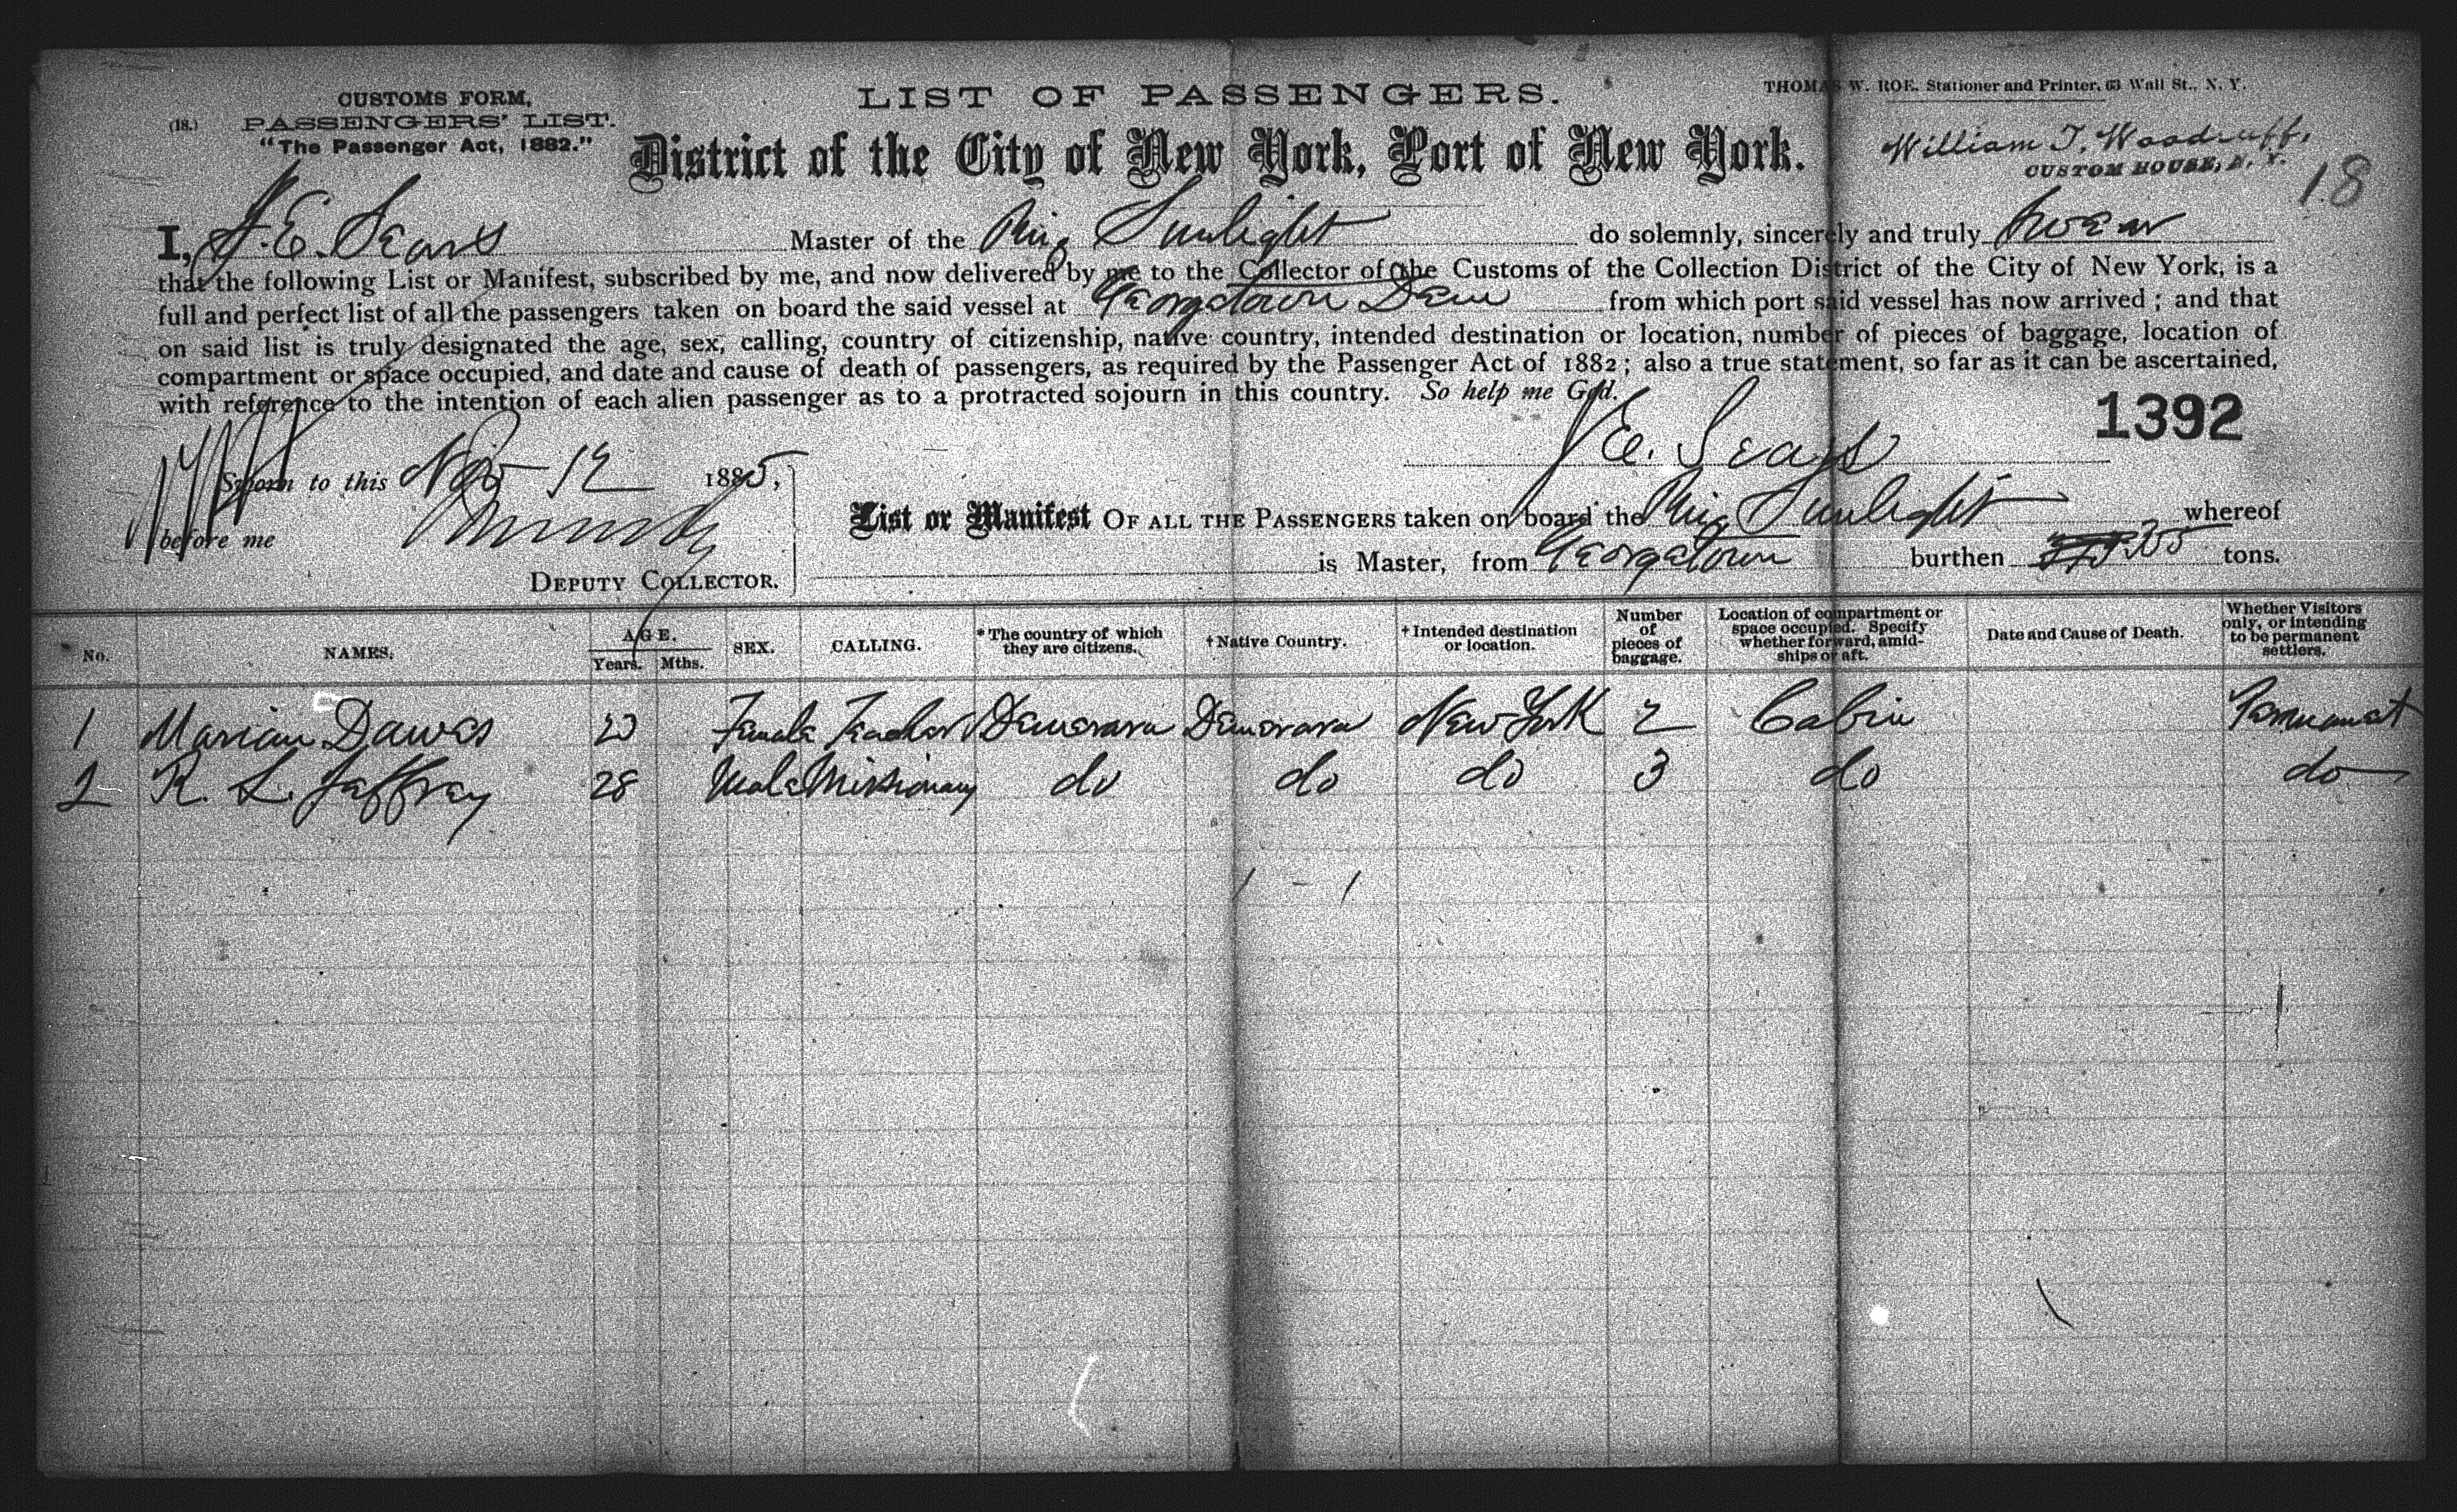 CUSTOMS FORM,
(18.) PASSENGERS' LIST.
"The Passenger Act, 1882."
LIST OF PASSENGERS.
THOMAS W. ROE, Stationer and Printer, 63 Wall St., N. Y.
District of the City of New York, Port of New York.
William T. Woodruff,
CUSTOM HOUSE, N. Y.
18
I, J. E. Sears Master of the Sunlight do solemnly, sincerely and truly swear
that the following List or Manifest, subscribed by me, and now delivered by me to the Collector of the Customs of the Collection District of the City of New York, is a
full and perfect list of all the passengers taken on board the said vessel at Georgetown Dem from which port said vessel has now arrived; and that
on said list is truly designated the age, sex, calling, country of citizenship, native country, intended destination or location, number of pieces of baggage, location of
compartment or space occupied, and date and cause of death of passengers, as required by the Passenger Act of 1882; also a true statement, so far as it can be ascertained,
with reference to the intention of each alien passenger as to a protracted sojourn in this country. So help me God.
1392
J E. Sears
Sworn to this Nov 12 1885,
before me
DEPUTY COLLECTOR.
List or Manifest OF ALL THE PASSENGERS taken on board the Sunlight whereof
is Master, from Georgetown burthen tons.
No. NAMES. AGE. Years. Mths. SEX. CALLING. *The country of which they are citizens. †Native Country. †Intended destination or location. Number of pieces of baggage. Location of compartment or space occupied. Specify whether forward, amidships or aft. Date and Cause of Death. Whether Visitors only, or intending to be permanent settlers.
1 Marian Dawes 23 Female Teacher Demerara Demerara New York 2 Cabin Permanent
2 R. L. Jaffray 28 Male Missionary do do do 3 do do
1 - 1